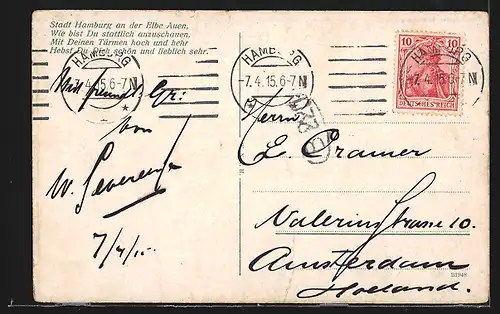 Stadt Hamburg an der Elbe Auen,
Wie bist Du stattlich anzuschauen,
Mit Deinen Türmen hoch und hehr
Hebst Du Dich schön und lieblich sehr.
HAMBURG
-7.4.15.6-7N
*
HAMBURG
-7.4.15.6-7N
*
HAMBURG
7.4.15.6-7N
10 10
DEUTSCHES REICH
Mit freundl. Gr:
von
W.
7/4/15
Herrn
E. Cramer
Valeriusstrasse 10.
Amsterdam
Holland.
23948